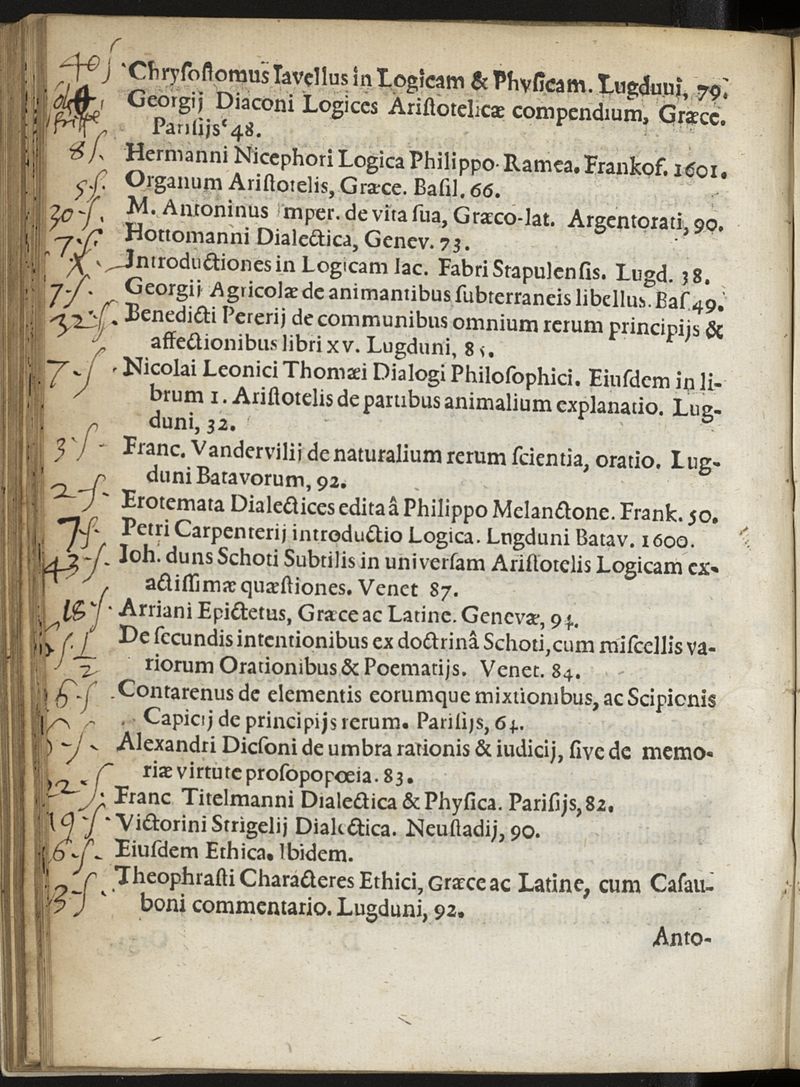 40 ſ Chryſoſtomus Iavellus in Logicam & Phyſicam. Lugduni, 79.
Georgij Diaconi Logices Ariſtotelicæ compendium, Græce.
Pariſijs 48.
8 ſ. Hermanni Nicephori Logica Philippo-Ramea. Frankof. 1601.
5 ſ. Organum Ariſtotelis, Græce. Baſil. 66.
30 ſ. M. Antoninus mper. de vita ſua, Græco-lat. Argentorati, 90.
7 ſ. Hottomanni Dialectica, Genev. 73.
X Introductiones in Logicam Iac. Fabri Stapulenſis. Lugd. 38.
7 ſ. Georgij Agricolæ de animantibus ſubterraneis libellus. Baſ. 49.
32 ſ. Benedicti Pererij de communibus omnium rerum principijs &
affectionibus libri xv. Lugduni, 8
7 ſ Nicolai Leonici Thomæi Dialogi Philoſophici. Eiuſdem in li-
brum 1. Ariſtotelis de partibus animalium explanatio. Lug-
duni, 32.
3 ſ Franc. Vandervilij de naturalium rerum ſcientia, oratio. Lug-
duni Batavorum, 92.
2 ſ. Erotemata Dialectices edita â Philippo Melanctone. Frank. 50.
7 ſ. Petri Carpenterij introductio Logica. Lngduni Batav. 1600.
43 ſ. Ioh. duns Schoti Subtilis in univerſam Ariſtotelis Logicam ex-
actiſſimæ quæſtiones. Venet 87.
18 ſ. Arriani Epictetus, Græce ac Latine. Genevæ, 94.
De ſecundis intentionibus ex doctrinâ Schoti, cum miſcellis va-
riorum Orationibus & Poematijs. Venet. 84.
6 ſ Contarenus de elementis eorumque mixtionibus, ac Scipionis
Capicij de principijs rerum. Pariſijs, 64.
Alexandri Dicſoni de umbra rationis & iudicij, ſive de memo-
riæ virtute proſopopœia. 83.
Franc Titelmanni Dialectica & Phyſica. Pariſijs, 82.
19 ſ Victorini Strigelij Dialectica. Neuſtadij, 90.
6 ſ. Eiuſdem Ethica. Ibidem.
Theophraſti Characteres Ethici, Græce ac Latine, cum Caſau-
boni commentario. Lugduni, 92.
Anto-